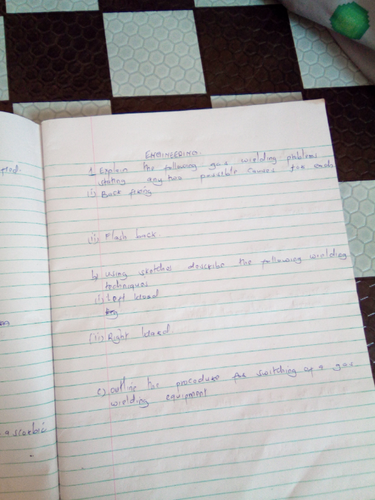 ENGINEERING.
1. Explain the following gas wielding problems
stating any two possible causes for each
(i) Back firing
(ii) Flash back
b) Using sketches describe the following wielding
techniques
(i) Left hand
(ii) Right hand
c) outline the procedure for switching of a gas
wielding equipment